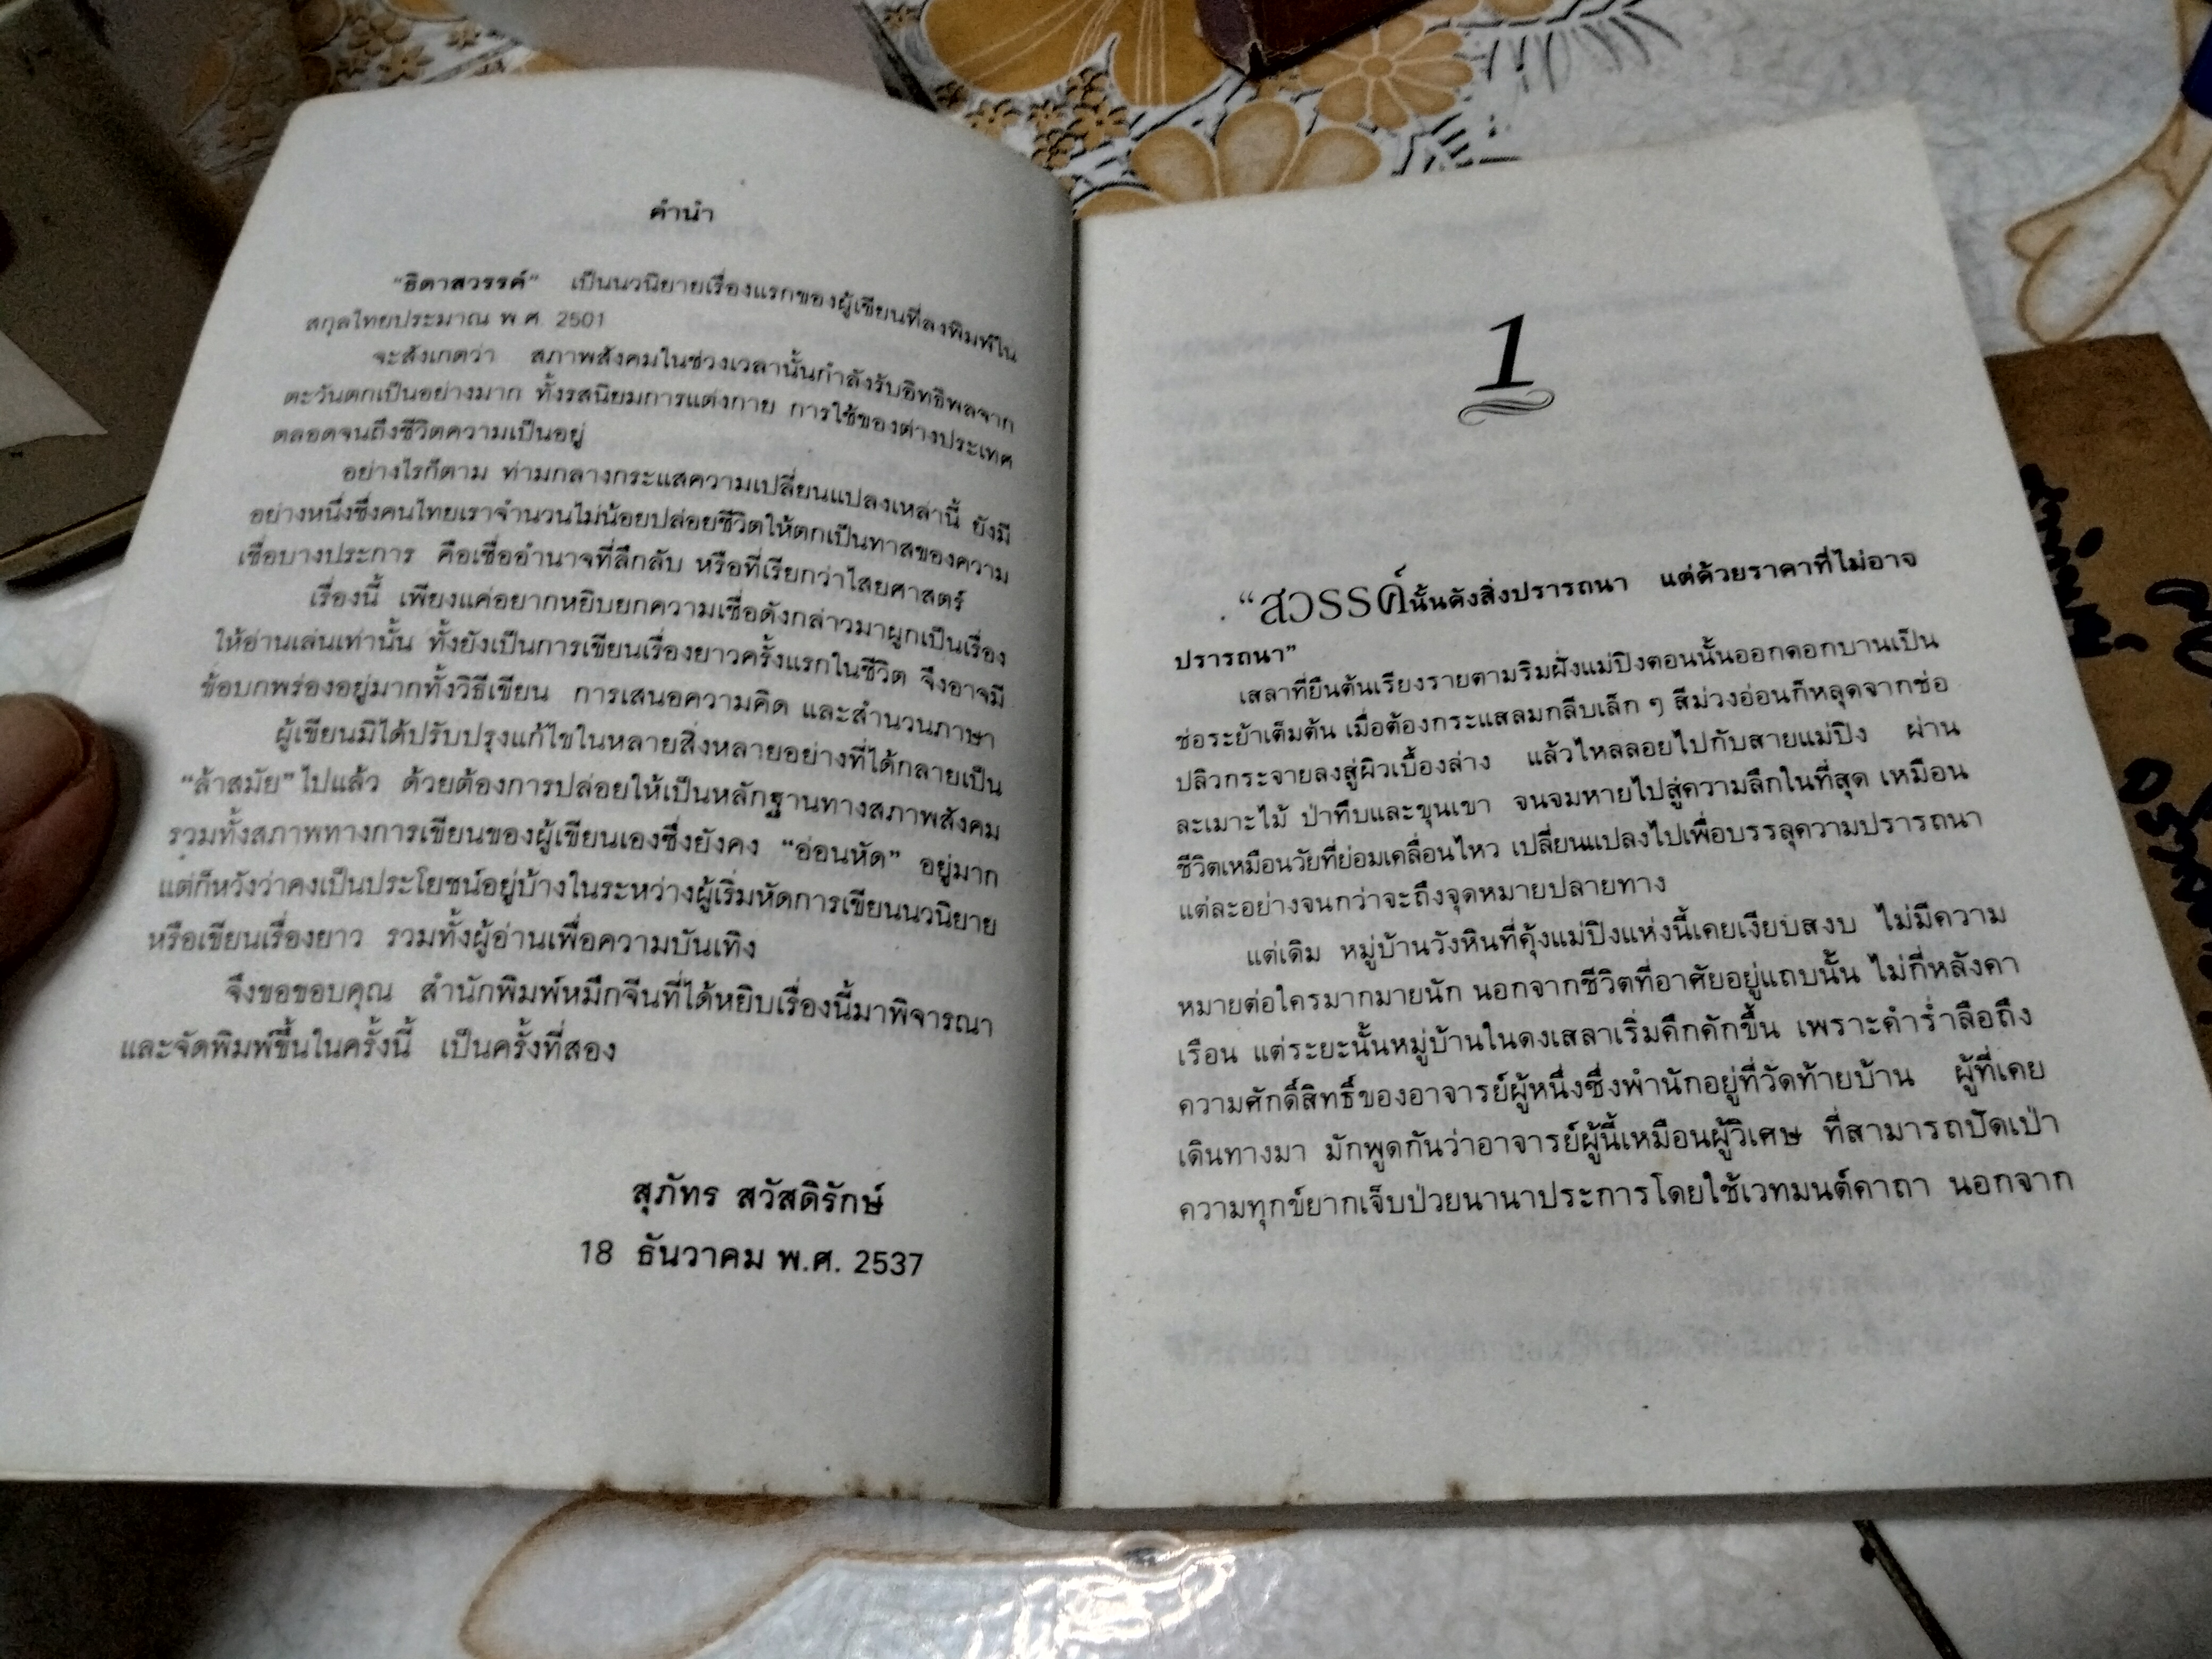 คำนำ
"ธิดาสวรรค์" เป็นนวนิยายเรื่องแรกของผู้เขียนที่ลงพิมพ์ใน
สกุลไทยประมาณ พ.ศ. 2501
จะสังเกตว่า สภาพสังคมในช่วงเวลานั้นกำลังรับอิทธิพลจาก
ตะวันตกเป็นอย่างมาก ทั้งรสนิยมการแต่งกาย การใช้ของต่างประเทศ
ตลอดจนถึงชีวิตความเป็นอยู่
อย่างไรก็ตาม ท่ามกลางกระแสความเปลี่ยนแปลงเหล่านี้ ยังมี
อย่างหนึ่งซึ่งคนไทยเราจำนวนไม่น้อยปล่อยชีวิตให้ตกเป็นทาสของความ
เชื่อบางประการ คือเชื่ออำนาจที่ลึกลับ หรือที่เรียกว่าไสยศาสตร์
เรื่องนี้ เพียงแค่อยากหยิบยกความเชื่อดังกล่าวมาผูกเป็นเรื่อง
ให้อ่านเล่นเท่านั้น ทั้งยังเป็นการเขียนเรื่องยาวครั้งแรกในชีวิต จึงอาจมี
ข้อบกพร่องอยู่มากทั้งวิธีเขียน การเสนอความคิด และสำนวนภาษา
ผู้เขียนมิได้ปรับปรุงแก้ไขในหลายสิ่งหลายอย่างที่ได้กลายเป็น
"ล้าสมัย" ไปแล้ว ด้วยต้องการปล่อยให้เป็นหลักฐานทางสภาพสังคม
รวมทั้งสภาพทางการเขียนของผู้เขียนเองซึ่งยังคง "อ่อนหัด" อยู่มาก
แต่ก็หวังว่าคงเป็นประโยชน์อยู่บ้างในระหว่างผู้เริ่มหัดการเขียนนวนิยาย
หรือเขียนเรื่องยาว รวมทั้งผู้อ่านเพื่อความบันเทิง
จึงขอขอบคุณ สำนักพิมพ์หมึกจีนที่ได้หยิบเรื่องนี้มาพิจารณา
และจัดพิมพ์ขึ้นในครั้งนี้ เป็นครั้งที่สอง
สุภัทร สวัสดิรักษ์
18 ธันวาคม พ.ศ. 2537
1
"สวรรค์นั้นคังสิ่งปรารถนา แต่ด้วยราคาที่ไม่อาจ
ปรารถนา"
เสลาที่ยืนต้นเรียงรายตามริมฝั่งแม่ปิงตอนนั้นออกดอกบานเป็น
ช่อระย้าเต็มต้น เมื่อต้องกระแสลมกลีบเล็ก ๆ สีม่วงอ่อนก็หลุดจากช่อ
ปลิวกระจายลงสู่ผิวเบื้องล่าง แล้วไหลลอยไปกับสายแม่ปิง ผ่าน
ละเมาะไม้ ป่าทึบและขุนเขา จนจมหายไปสู่ความลึกในที่สุด เหมือน
ชีวิตเหมือนวัยที่ย่อมเคลื่อนไหว เปลี่ยนแปลงไปเพื่อบรรลุความปรารถนา
แต่ละอย่างจนกว่าจะถึงจุดหมายปลายทาง
แต่เดิม หมู่บ้านวังหินที่คุ้งแม่ปิงแห่งนี้เคยเงียบสงบ ไม่มีความ
หมายต่อใครมากมายนัก นอกจากชีวิตที่อาศัยอยู่แถบนั้น ไม่กี่หลังคา
เรือน แต่ระยะนั้นหมู่บ้านในดงเสลาเริ่มคึกคักขึ้น เพราะคำร่ำลือถึง
ความศักดิ์สิทธิ์ของอาจารย์ผู้หนึ่งซึ่งพำนักอยู่ที่วัดท้ายบ้าน ผู้ที่เคย
เดินทางมา มักพูดกันว่าอาจารย์ผู้นี้เหมือนผู้วิเศษ ที่สามารถปัดเป่า
ความทุกข์ยากเจ็บป่วยนานาประการโดยใช้เวทมนต์คาถา นอกจาก